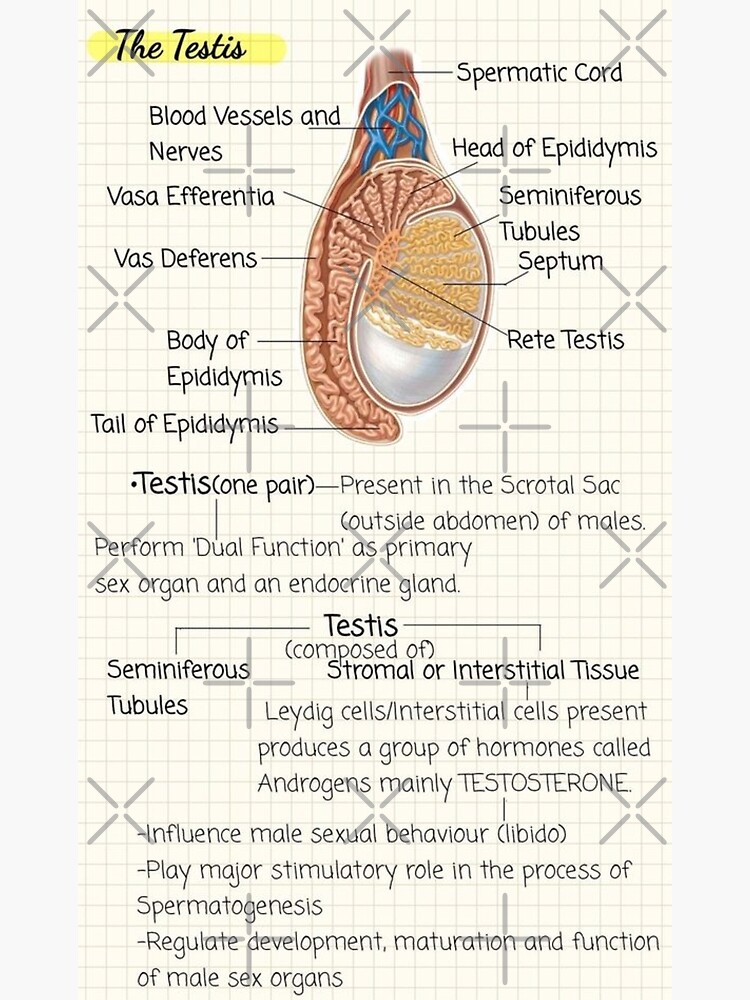 The Testis
Spermatic Cord
Blood Vessels and
Nerves
Head of Epididymis
Vasa Efferentia
Seminiferous
Tubules
Vas Deferens
Septum
Body of
Epididymis
Rete Testis
Tail of Epididymis
•Testis(one pair)—Present in the Scrotal Sac
(outside abdomen) of males.
Perform 'Dual Function' as primary
sex organ and an endocrine gland.
Testis
(composed of)
Seminiferous
Tubules
Stromal or Interstitial Tissue
Leydig cells/Interstitial cells present
produces a group of hormones called
Androgens mainly TESTOSTERONE.
-Influence male sexual behaviour (libido)
-Play major stimulatory role in the process of
Spermatogenesis
-Regulate development, maturation and function
of male sex organs